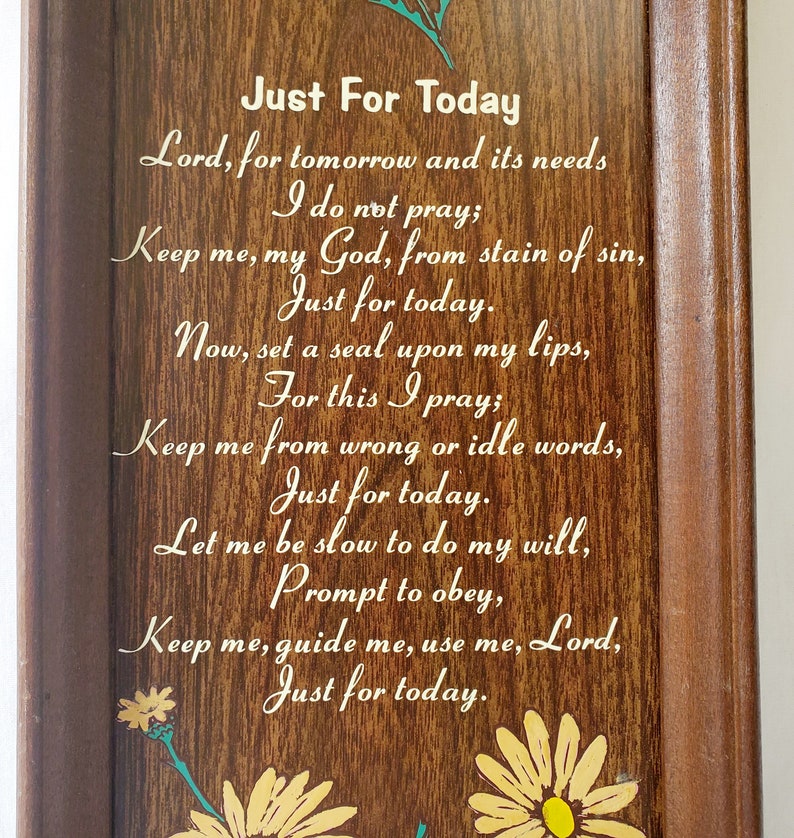 Just For Today
Lord, for tomorrow and its needs
I do not pray;
Keep me, my God, from stain of sin,
Just for today.
Now, set a seal upon my lips,
For this I pray;
Keep me from wrong or idle words,
Just for today.
Let me be slow to do my will,
Prompt to obey,
Keep me, guide me, use me, Lord,
Just for today.